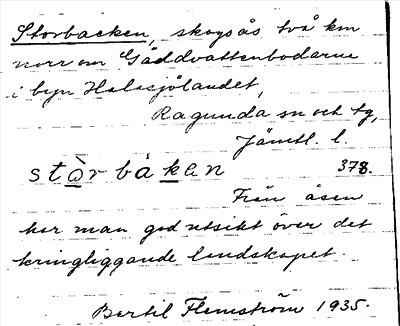 Storbacken, skogsås två km
norr om Gäddvattenbodarne
i byn Halasjölandet,
Ragunda sn och tg,
Jämtl. l.
stòrbáken 378.
Från åsen
har man god utsikt över det
kringliggande landskapet.
Bertil Flemström 1935.